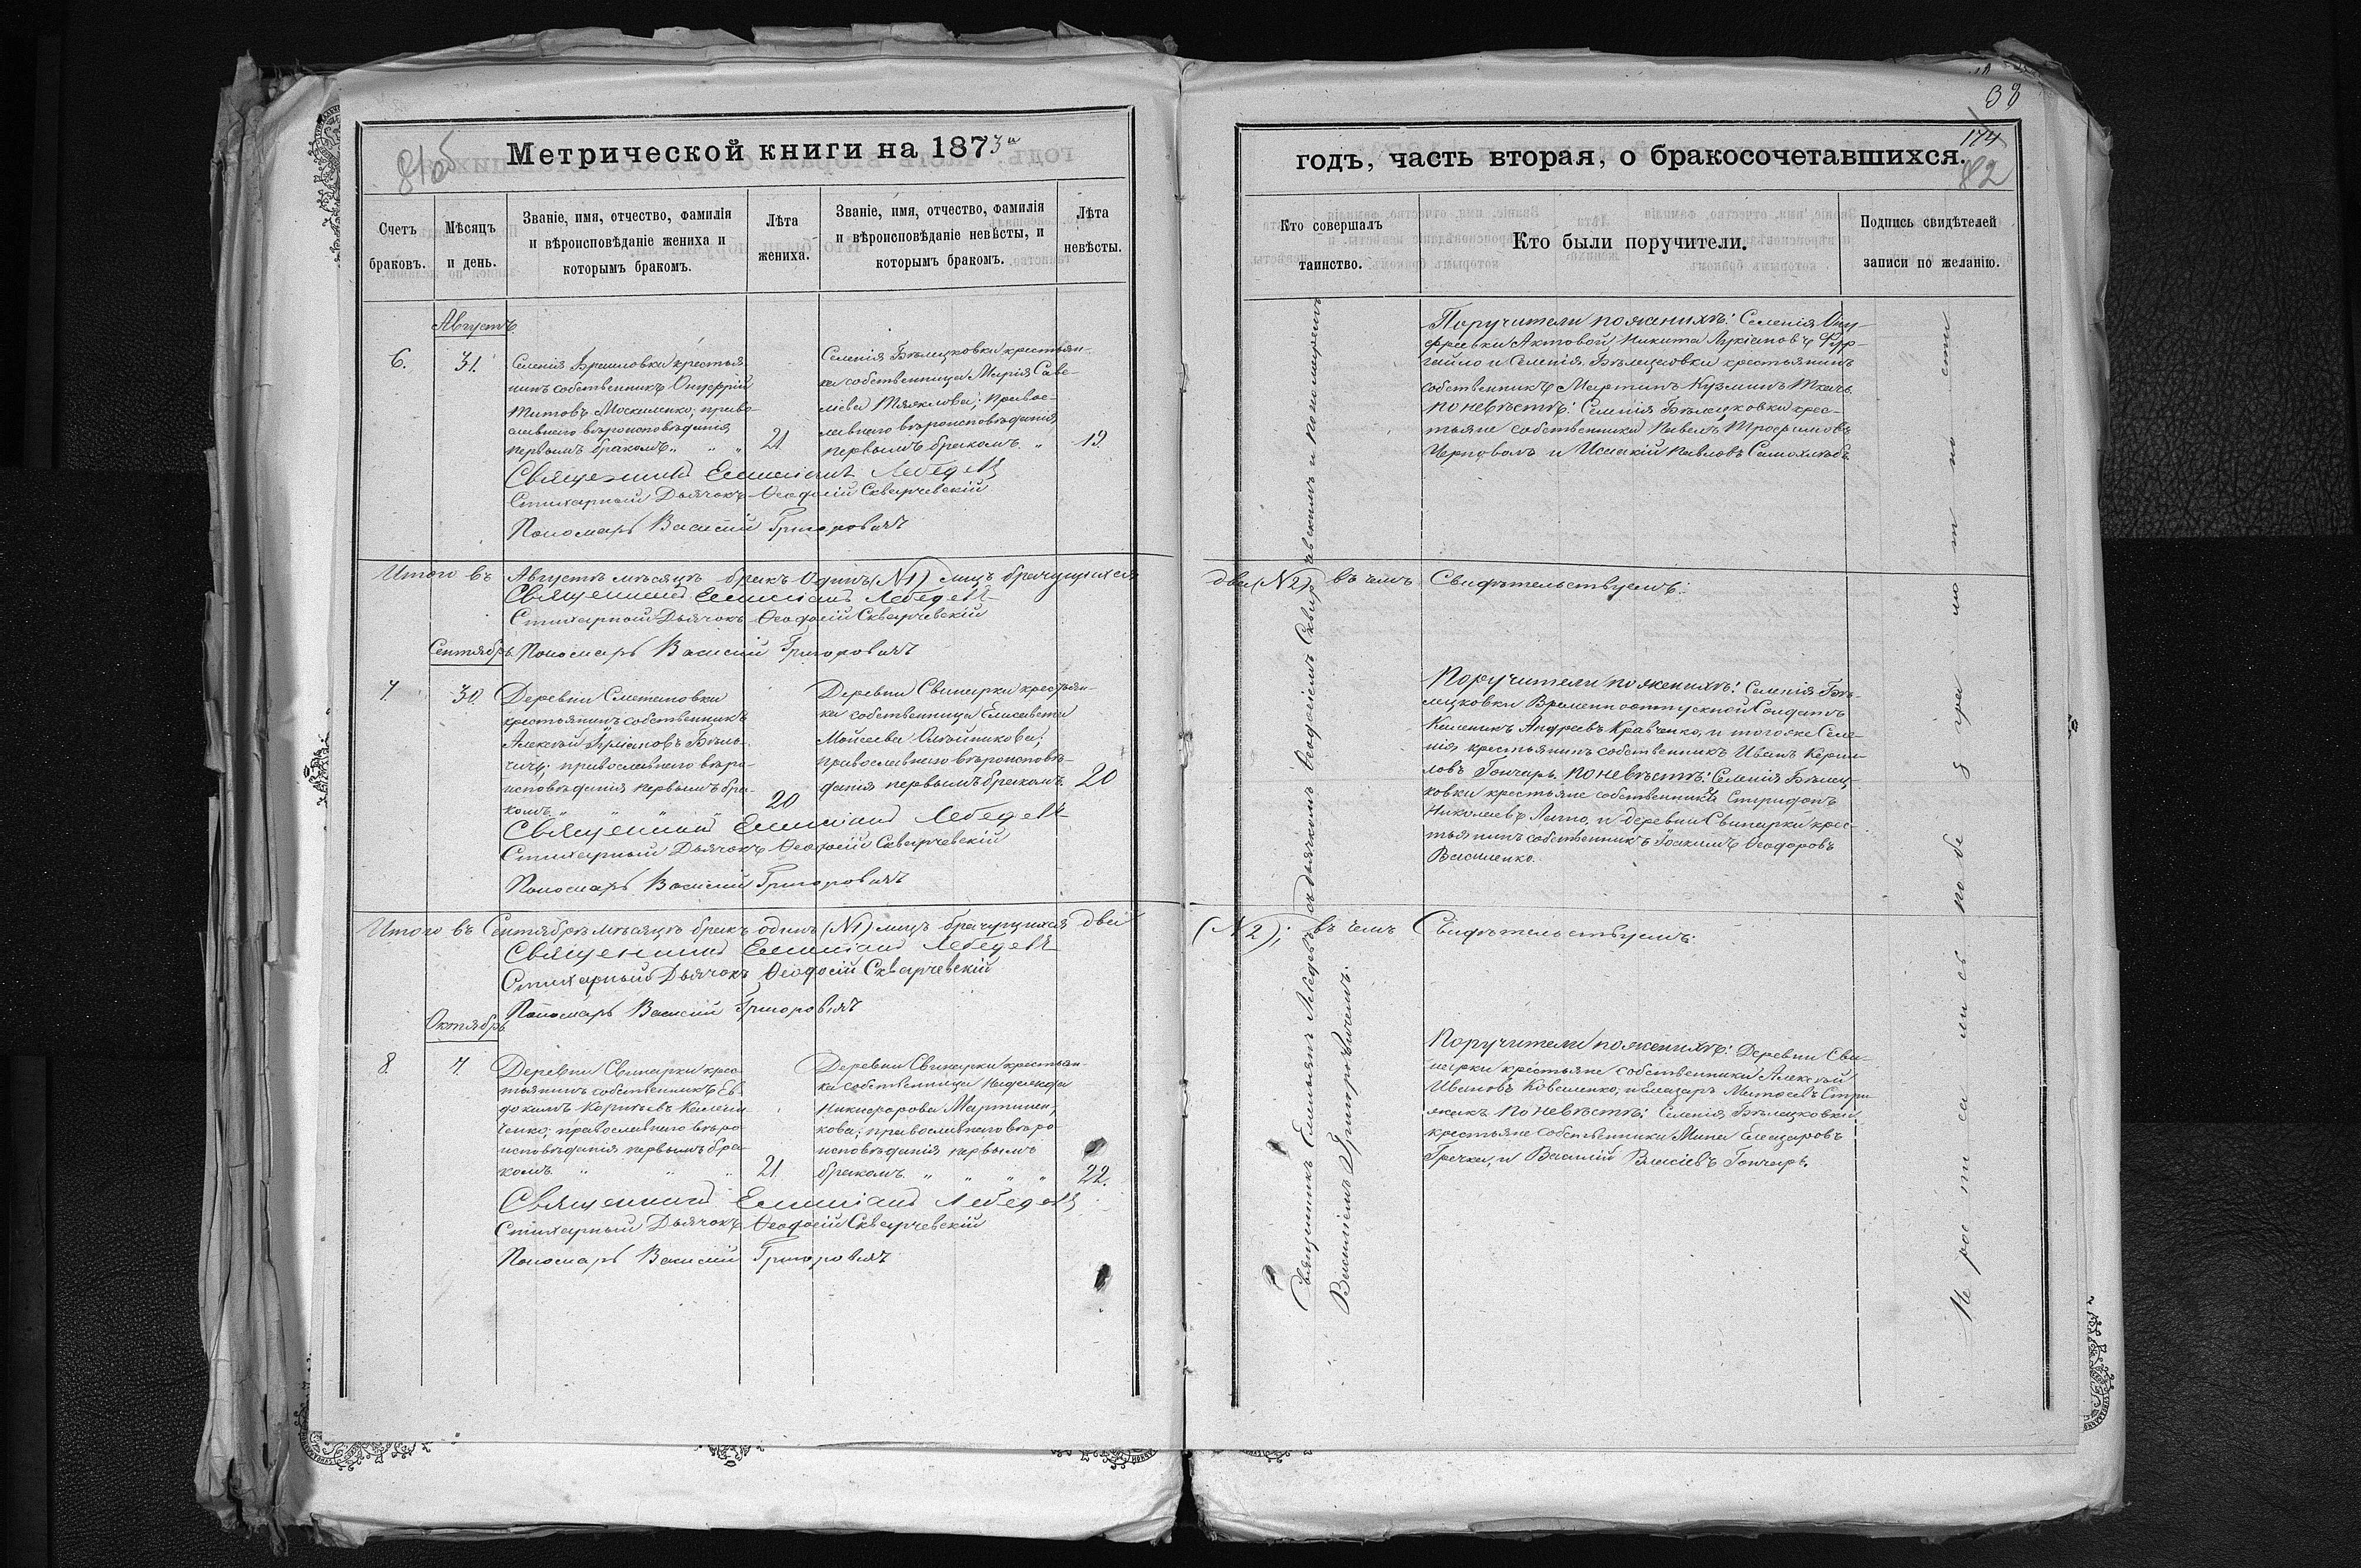 81об
Метрической книги на 1873й
Счетъ браковъ.
Мѣсяцъ и день.
Званіе, имя, отчество, фамилія
и вѣроисповѣданіе жениха и
которымъ бракомъ.
Лѣта
жениха.
Званіе, имя, отчество, фамилія
и вѣроисповѣданіе невѣсты, и
которымъ бракомъ.
Лѣта
невѣсты.
Августъ
6.
31.
Селенія крестья-
нинъ собственникъ Онуфрій
Титовъ Москаленко; право-
славнаго вѣроисповѣданія,
первымъ бракомъ „ „ „
21
Селенія Бѣлецковки крестьян-
ка собственница Марія Саве-
лева православ-
славнаго вѣроисповѣданія,
первымъ бракомъ „
19.
Священникъ Емиліанъ Лебедевъ
Стихарный Дьячокъ Ѳеодосій Скварчевскій
Пономарь Василій Григоровичъ
Итого въ Августѣ мѣсяцѣ бракъ одинъ (№1) лицъ брачущихся
Священникъ Емиліанъ Лебедевъ
Стихарный Дьячокъ Ѳеодосій Скварчевскій
Сентябрь
Пономарь Василій Григоровичъ
7.
30.
Деревни Сметановки
крестьянинъ собственникъ
Алексѣй Бѣль-
чичъ; православнаго вѣро-
исповѣданія первымъ бра-
комъ. „ „ „
20
Деревни Свинарки крестьян-
ка собственница Елисавета
Моисеева Олейникова;
православнаго вѣроисповѣ-
данія первымъ бракомъ.
20
Священникъ Емиліанъ Лебедевъ
Стихарный Дьячокъ Ѳеодосій Скварчевскій
Пономарь Василій Григоровичъ
Итого въ Сентябрѣ мѣсяцѣ бракъ одинъ (№1) лицъ брачущихся два
Священникъ Емиліанъ Лебедевъ
Стихарный Дьячокъ Ѳеодосій Скварчевскій
Пономарь Василій Григоровичъ
Октябрь
8.
7.
Деревни Свинарки крес-
тьянинъ собственникъ Ев-
докимъ Корнѣевъ
православнаго вѣро
исповѣданія первымъ бра-
комъ. „ „ „
21.
Деревни Свинарки крестьян-
ка собственница Надежда
Никифорова Мартинен-
кова; православнаго вѣро
исповѣданія первымъ
бракомъ. „ „ „ „
22.
Священникъ Емиліанъ Лебедевъ
Стихарный Дьячокъ Ѳеодосій Скварчевскій
Пономарь Василій Григоровичъ
38
174
82
годъ, часть вторая, о бракосочетавшихся.
Кто совершалъ
таинство.
Кто были поручители.
Подпись свидѣтелей
записи по желанію.
Священникъ Емельянъ Лебедевъ съ дьячкомъ Ѳеодосіемъ Скварчавскимъ и пономаремъ
Василіемъ Григоровичемъ.
Поручители по женихѣ: Селенія Ону-
фріевки Никита Лукіановъ
и Селенія Бѣлецковки крестьянинъ
собственникъ Мартинъ Кузминъ Ткачъ.
по невѣстѣ: Селенія Бѣлецковки крес-
тьяне собственники Павелъ Трофимовъ
Черповолъ и Исаакій Павловъ Самохлѣбъ
два (№2) въ чемъ Свидѣтельствуемъ:
Поручители по женихѣ: Селенія Бѣ-
лецковки Временноотпускной Солдатъ
Калиникъ Андреевъ Кравченко, и тогоже Селе-
нія крестьянинъ собственникъ Иванъ Кирил-
ловъ Гончаръ. по невѣстѣ: Селенія Бѣлец-
ковки крестьяне собственники Спиридонъ
Николаевъ и деревни Свинарки крес-
тьянинъ собственникъ Іоакимъ Ѳеодоровъ
Василенко.
(№2); въ чемъ Свидѣтельствуемъ:
Поручители по женихѣ: Деревни Сви-
нарки крестьяне собственники Алексѣй
Ивановъ Коваленко, и Елеазаръ Матѳеевъ Стри-
жакъ по невѣстѣ: Селенія Бѣлецковки
крестьяне собственники Мина Елеазаровъ
Гречка, и Василій Власіевъ Гончаръ.